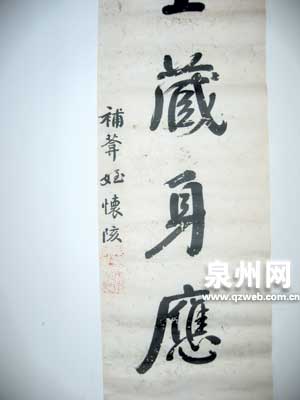 藏身應
補葊姪懷陔
泉州网
www.qzweb.com.cn